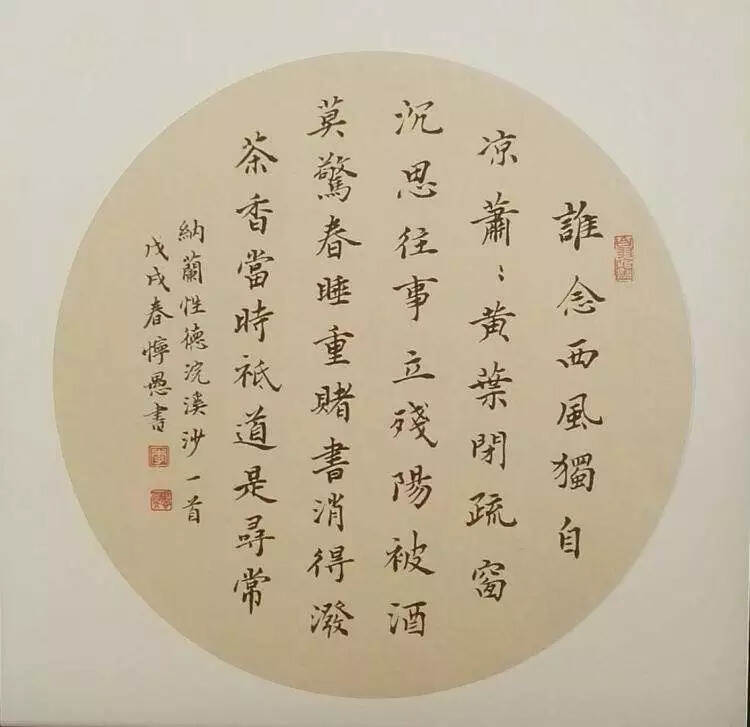 誰念西風獨自
凉蕭〻黃葉閉疏窗
沉思往事立殘陽被酒
莫驚春睡重賭書消得潑
茶香當時祇道是尋常
納蘭性德浣溪沙一首
戊戌春懧愚書